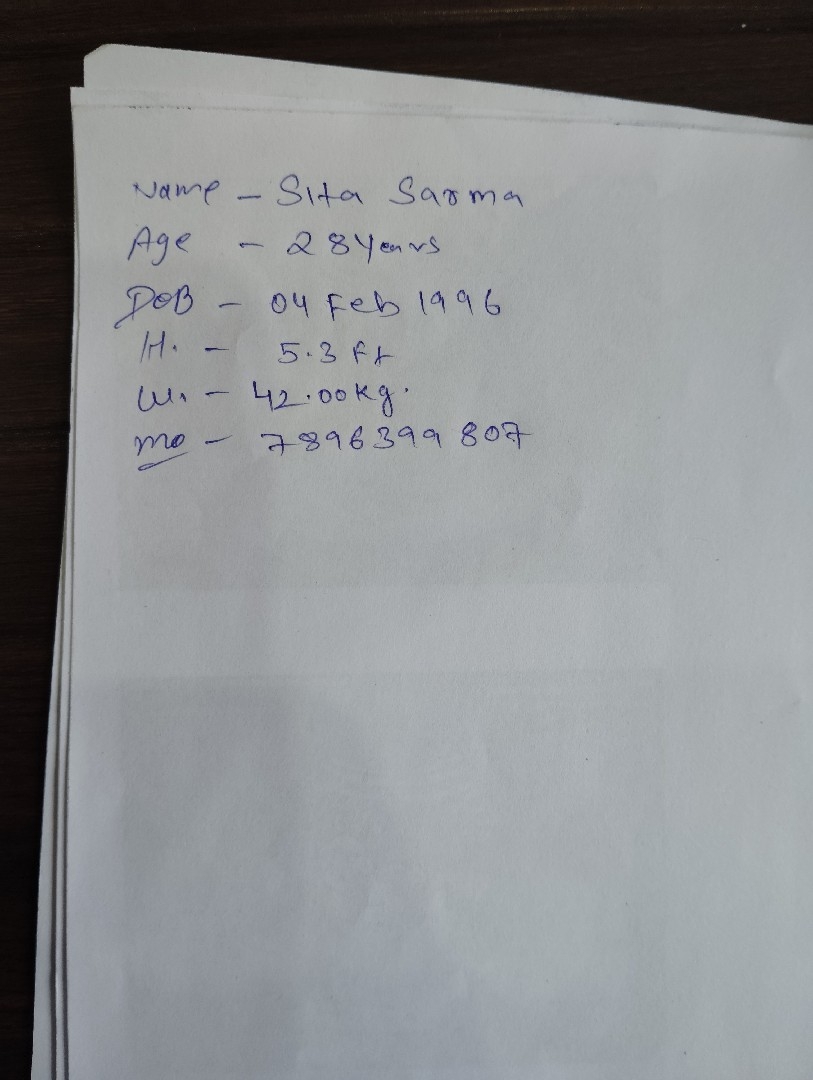 Name - Sita Sarma
Age - 28 Years
DOB - 04 Feb 1996
H. - 5.3 ft
W. - 42.00 kg.
mo - 7896399 807